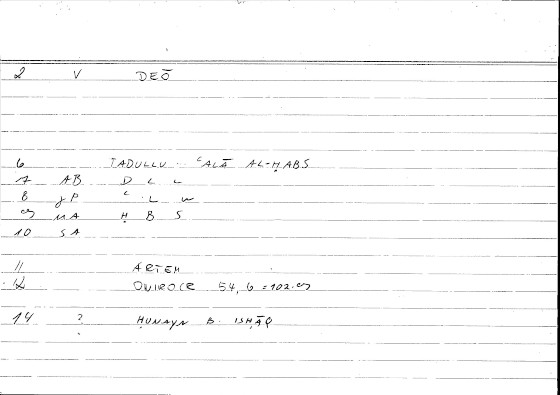 2 V DEŌ
6 TADULLU ʿALĀ AL-ḤABS
7 AB D L L
8 JP ʿ L W
9 MA Ḥ B S
10 SA
11 ARTEM
12 OVIROCR 54, 6 = 102.9
14 ? ḤUNAYN B. ISḤĀQ